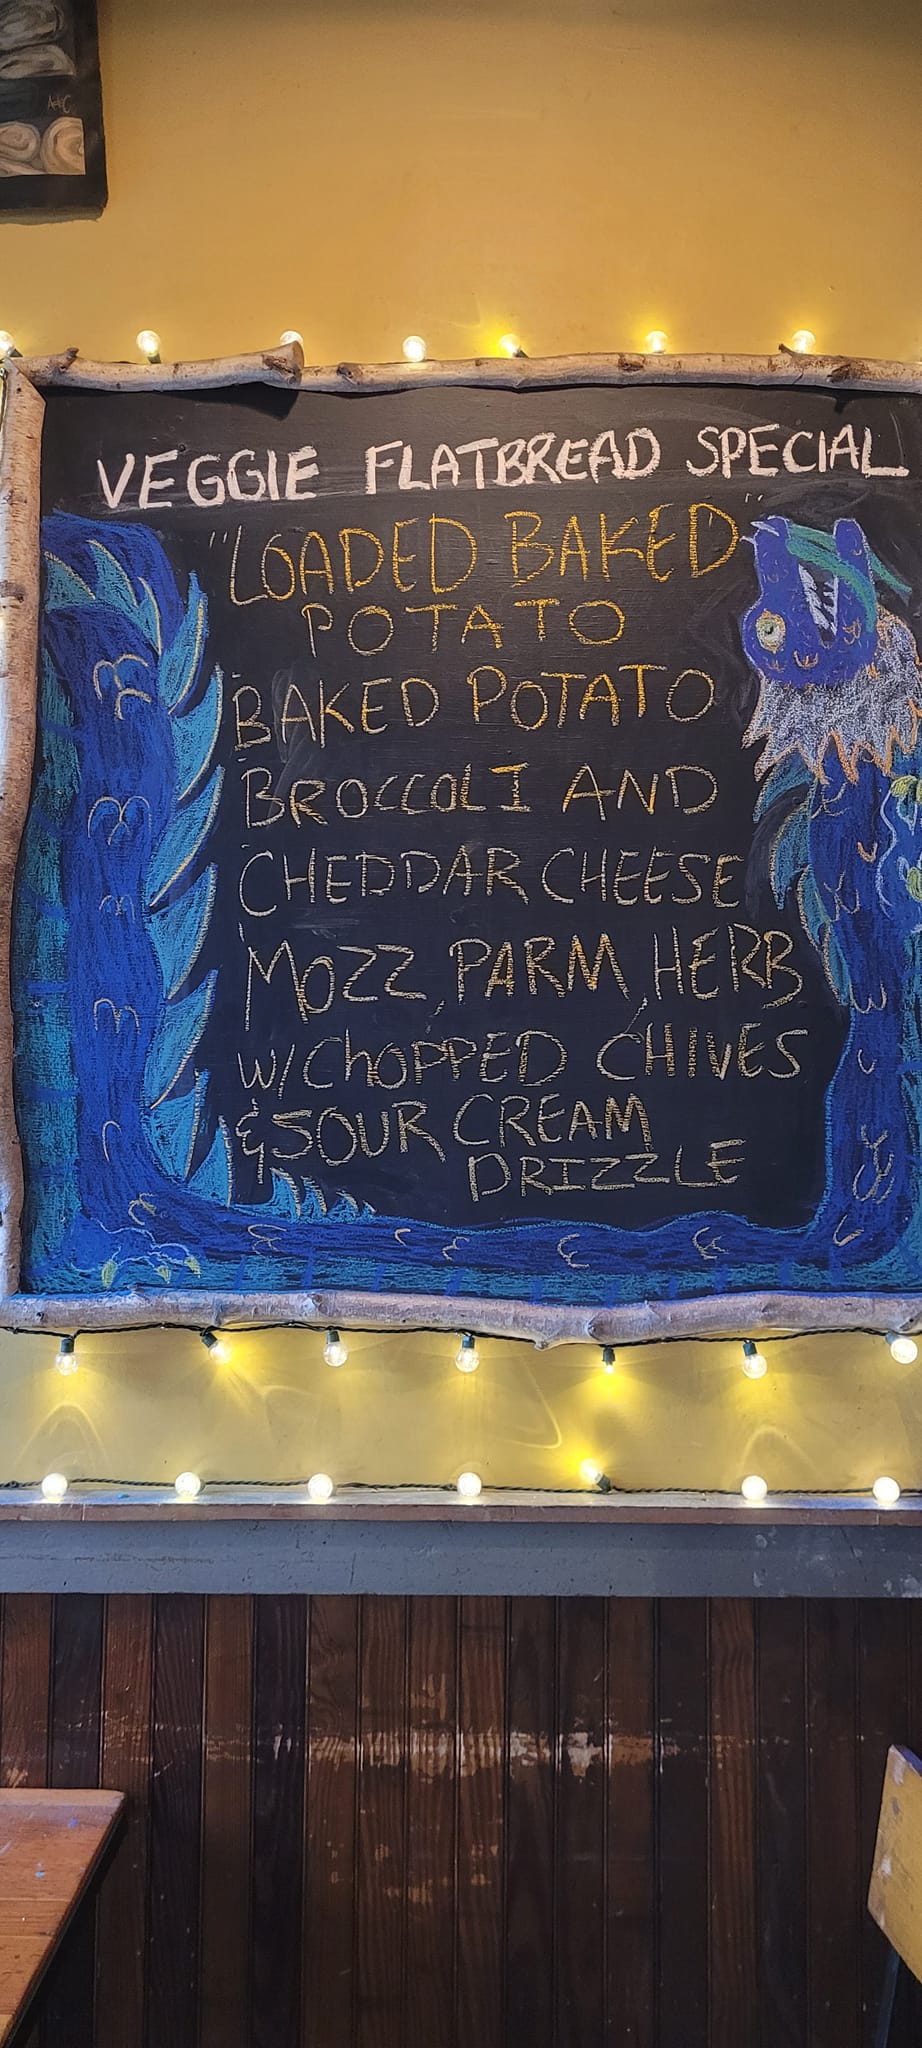 A&C
VEGGIE FLATBREAD SPECIAL
"LOADED BAKED"
POTATO
BAKED POTATO
BROCCOLI AND
CHEDDAR CHEESE
MOZZ, PARM, HERB
W/CHOPPED CHIVES
& SOUR CREAM
DRIZZLE